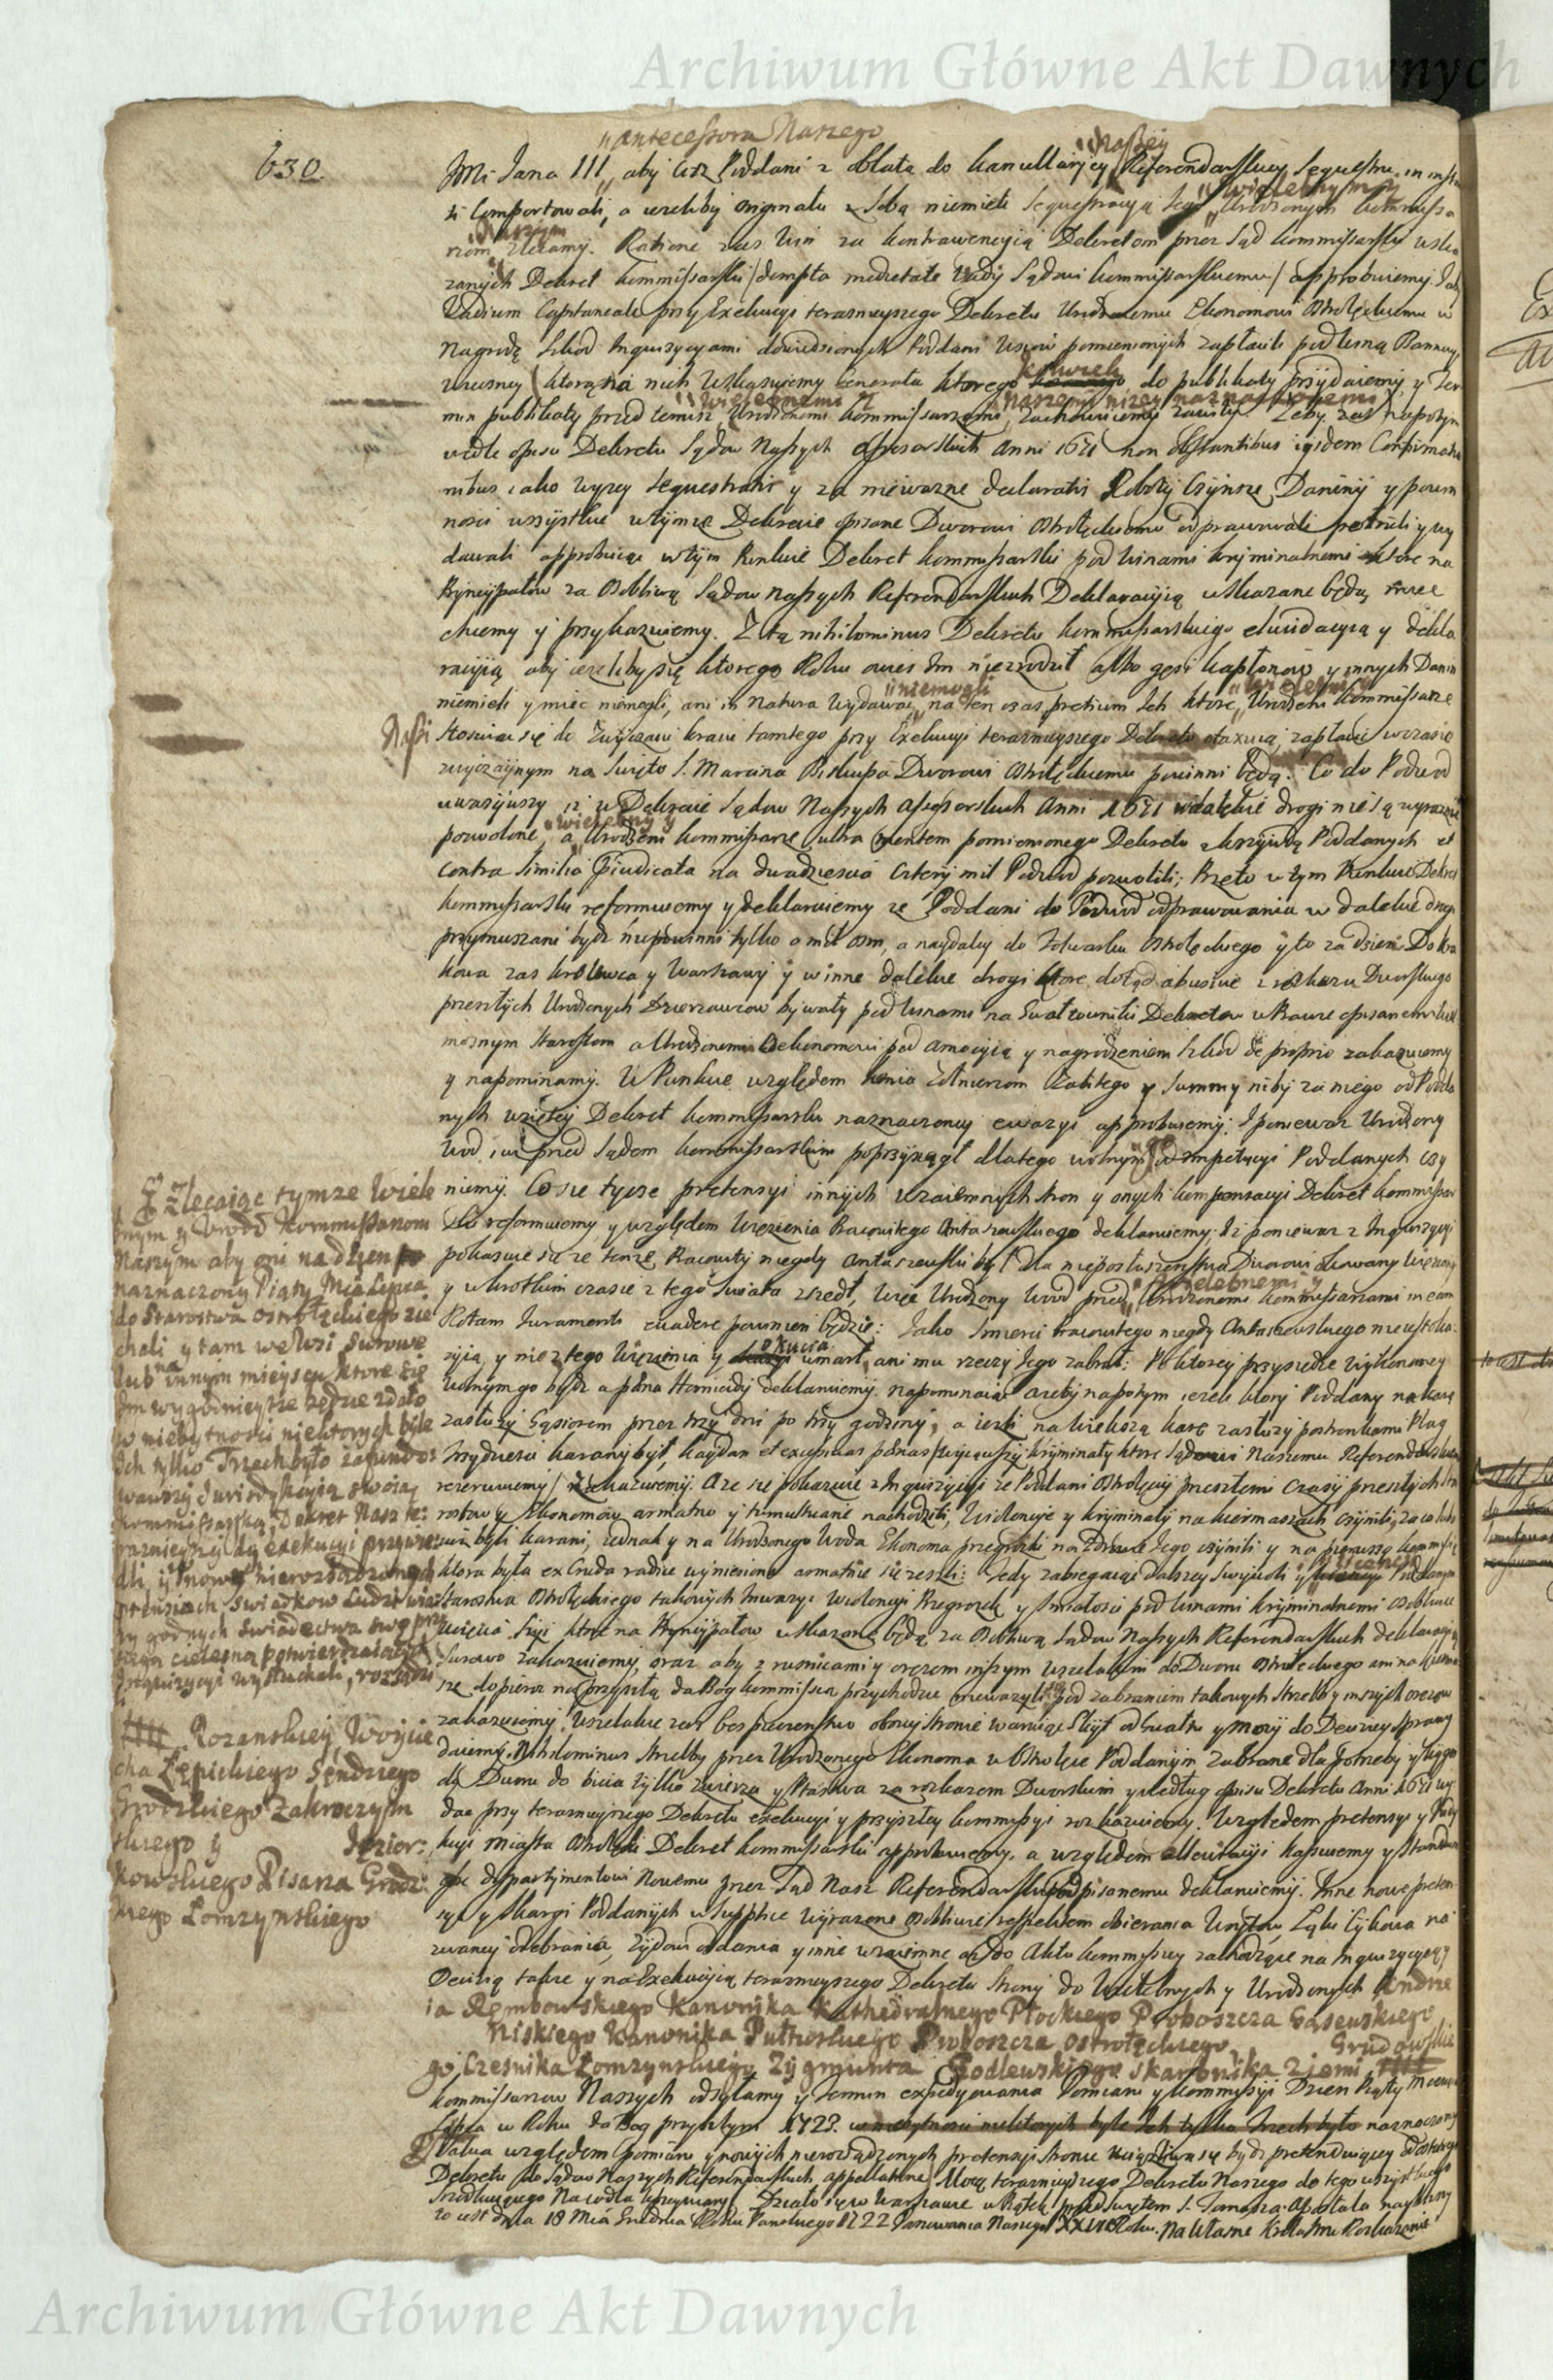 Archiwum Główne Akt Dawnych
630.
"antecessora Naszego
"Naszey
Jmi Jana III, aby ciż Poddani z oblatą do kancellaryiey Referendarskiey Sequestru in inst
ti comportowali, a ieżeliby originału z sobą niemieli Sequestracyą tego Urodzonym kommissa
"Wielebnym y
"Naszym
rzom zlecamy. Ratione zas Win za kontrawencyią Dekretom przez Sąd kommissarski wska
zanych Dekret kommissarski /dempta medietate Vadij Sądowi kommissarskiemu/ approbuiemy.
Vadium Capitaneale przy Exekucyi teraznieyszego Dekretu Urodzonemu Ekonomowi Ostrołęckiemu w
Nagrodę szkod Inquizycyami dowiedzionych Poddani Wsiow pomienionych zapłacili pod winą Bannicyi
wieczney ktorą na nich Wskazuiemy Generała ktorego do publikaty przydaiemy, y Ter
kolwiek
"Wielebnemi y
naszemi nizey naznaczonemi
min publikaty przed temisz Urodzonemi kommissarzami, zachowuiemy zawity. Zeby zas napotym
wedle opisu Dekretu Sądow Naszych Assesorskich Anni 1671 non obstantibus iisdem Confirmatio
nibus iako wyzey sequestratis y za niewazne declaratis Roboty Czynsze, Daniny y powin
nosci wszystkie w tymze Dekrecie opisane Dworowi Ostrołęckiemu odprawowali pełnili y wy
dawali approbuiąc w tym Punkcie Dekret kommissarski pod winami kryminalnemi ktore na
Pryncypałow za Osobliwą Sądow naszych Referendarskich Deklaracyią wskazane będą miec
chcemy y przykazuiemy. Z tą nihilominus Dekretu kommissarskiego elucidacyą y dekla
racyią, aby ieżeliby się ktorego Roku owies Im niezrodził albo gęsi kapłonow y innych Danin
"niemogli
"Wielebni y
niemieli y miec niemogli, ani in Natura wydawac, na ten czas pretium Ich ktore Urodzeni kommissarze
Nasi
stosuiąc się do zwyczaiu kraiu tamtego przy Exekucyi teraznieyszego Dekretu otaxuią, zapłacić w czasie
zwyczaynym na Swięto S. Marcina Biskupa Dworowi Ostrołęckiemu powinni będą. Co do Podwod
uwazywszy iz w Dekrecie Sądow Naszych Assesorskich Anni 1671 w dalekie drogi nie są wyraznie
"Wielebni y
pozwolone, a Urodzeni kommissarze ultra mentem pomienionego Dekretu z krzywdą Poddanych et
contra similia Praeiudicata na dwadziescia cztery mil Podwod pozwolili; Przeto w tym Punkcie Dekret
kommissarski reformuiemy y deklaruiemy ze Poddani do Podwod odprawowania w dalekie drogi
przymuszani bydz niepowinni tylko o mil osm, a naydaley do Folwarku Ostrołęckiego y to za dzień. Do Kra
kowa zas Krolewca y Warszawy y w inne dalekie drogi ktore dotąd abusive z rozkazu Dworskiego
przeszłych Urodzonych Dzierzawcow bywały pod winami na Gwałtowniki Dekretow w Prawie opisanemi Wiel
moznym Starostom a Urodzonemu Oekonomowi pod amocyią y nagrodzeniem szkod de proprio zakazuiemy
y napominamy. W Punkcie względem konia żołnierzom zabitego y Summy niby za niego od Podda
nych wziętej Dekret kommissarski naznaczoney ewazyi approbuiemy: I poniewaz Urodzony
Wod iuz przed Sądem kommissarskim poprzysiągł dlatego wolnym go od impeticyi Poddanych czy
niemy. Co się tycze pretensyi innych wzaiemnych stron y onych kompensacyi Dekret kommissar
ski reformuiemy y względem Więzienia Pracowitego Antaszewskiego deklaruiemy: Iż poniewaz z Inquizycyi
pokazuie się ze tenze Pracowity niegdy Antaszewski był dla nieposłuszenstwa Dworowi okowany więziony
"Wielebnemi y
y w krotkim czasie z tego swiata zszedł, więc Urodzony Wod przed Urodzonemi kommissarzami in eam
Rotam Juramenti evadere powinien będzie: Iako Smierci Pracowitego niegdy Antaszewskiego nie iest oka
okucia
zyią, y nie z tego więzienia y umarł, ani mu rzeczy Iego zabrał: Po ktorey przysiędze wykonaney
wolnym go bydz a paena Homicidij deklaruiemy. napominaiąc azeby napotym iezeli ktory Poddany na karę
zasłuzy Gąsiorem przez trzy dni po trzy godziny, a iezli na większą karę zasłuzy postronkami Plag
trzydziesci karany był, kaydan et excessivas paenas /wyiąwszy kryminały ktore Sądowi Naszemu Referendarskiemu
rezerwuiemy/ zakazuiemy. A ze się pokazuie z Inquizycyi ze Poddani Ostrołęccy przeszłemi czasy przeszłych Sta
rostow y Ekonomow armatno y tumultuarie nachodzili, Wiolencye y kryminały na kiermaszach czynili, za co lubo
iuz byli karani, iednak y na Urodzonego Woda Ekonoma przegrozki na zdrowie Iego czynili y na pierwszą kommissyą
ktora była ex Cruda radice wyniesiona armatnie się zeszli: Tedy zabiegaiąc dalszey Swywoli y Poddanych
Starostwa Ostrołęckiego takowych Inwazyi Wiolencyi Przegrozek y smiałosci pod winami kryminalnemi osobliwie
ucięcia szyi ktore na Pryncypałow wskazane będą za Osobliwą Sądow Naszych Referendarskich deklaracyią
Surowo zakazuiemy, oraz aby z rusnicami y oręzem inszym wszelakim do Dworu Ostrołęckiego ani na kierma
sze dopieroz na przyszłą da Bog kommissią przychodzic niewazyli się pod zabraniem takowych strzelb y inszych oręzow
zakazuiemy. Wszelakie zas bespieczenstwo oboiey stronie waruiąc Gleyt od Gwałtu y mocy do Dworney Sprawy
daiemy. Nihilominus strzelby przez Urodzonego Ekonoma w Ostrołęce Poddanym zabrane dla potrzeby y wygo
dy Domu do bicia tylko zwierza y Ptastwa za rozkazem Dworskim y według opisu Dekretu Anni 1671 wy
dac przy teraznieyszego Dekretu exekucyi y przyszłey kommissyi rozkazuiemy. Względem pretensyi y
kcyi Miasta Ostrołęki Dekret kommissarski approbuiemy, a względem allewiacyi kassuiemy y
dyspartymentowi Nowemu przez Sąd Nasz Referendarski podpisanemu deklaruiemy. Inne nowe preten
sye y skargi Poddanych w supplice wyrazone osobliwie respektem obierania Woytow, Łąki Cykowa na
zwaney odebrania, Żydow oddania y inne wzaiemne az do Aktu kommissyey zachodzące na Inquizycyią y
Decizią takze y na Exekucyią teraznieyszego Dekretu Strony do Wielebnych y Urodzonych Andrze
ia Rembowskiego Kanonika Kathedralnego Płockiego Proboszcza Gąsewskiego
niskiego Kanonika Pułtoskiego Proboszcza Ostrołęckiego, Grudowskie
go Czesnika Łomzynskiego Zygmunta Godlewskiego Skarbnika Ziemi
kommissarzow Naszych odsyłamy y Termin expedyowania Pomiaru y kommissyi Dzien Piąty Miesiąca
Lipca w Roku da Bog przyszłym 1723. w niebytnosci niektorych byle Ich tylko trzech było naznaczony
Salva względem Pomiaru y nowych nierozsądzonych pretensyi stronie uciązliwą się bydz pretenduiącey od
Dekretu do Sądow Naszych Referendarskich appellatione, Mocą teraznieyszego Dekretu Naszego do tego wszystkiego
Działo się w Warszawie w Piątek przed Swiętem S. Tomasza Apostoła
to iest dnia 18 Mca Grudnia Roku Panskiego 1722 Panowania Naszego XXVI Roku. Na własne Krola Jmci Rozkazanie
Zlecaiąc tymze Wiele
bnym y Urodz Kommissarzom
Naszym aby oni na dzien
naznaczony Piąty Mca Lipca
do Starostwa Ostrołęckiego zie
chali y tam we Wsi Surowe
lub na innym mieyscu ktore się
Im wygodnieysze będzie zdało
w niebytnosci niektorych byle
Ich tylko Trzech było zafundo:
wawszy Jurisdykcyią swoią
Kommissarską, Dekret Nasz te:
raznieyszy do exekucyi przywie
dli, y nowych nierozsądzonych
pretensiach, Swiadkow ludzi wia:
ry godnych swiadectwa swe przy
sięgą cielesną potwierdzaiących
Inquizycyi wysłuchali, rozsądzili
Rozanskiey, Woycie
cha Łępickiego Sędziego
Grodzkiego Zakroczym
skiego y Jezior:
kowskiego Pisarza Grodz:
kiego Łomzynskiego
Archiwum Główne Akt Dawnych